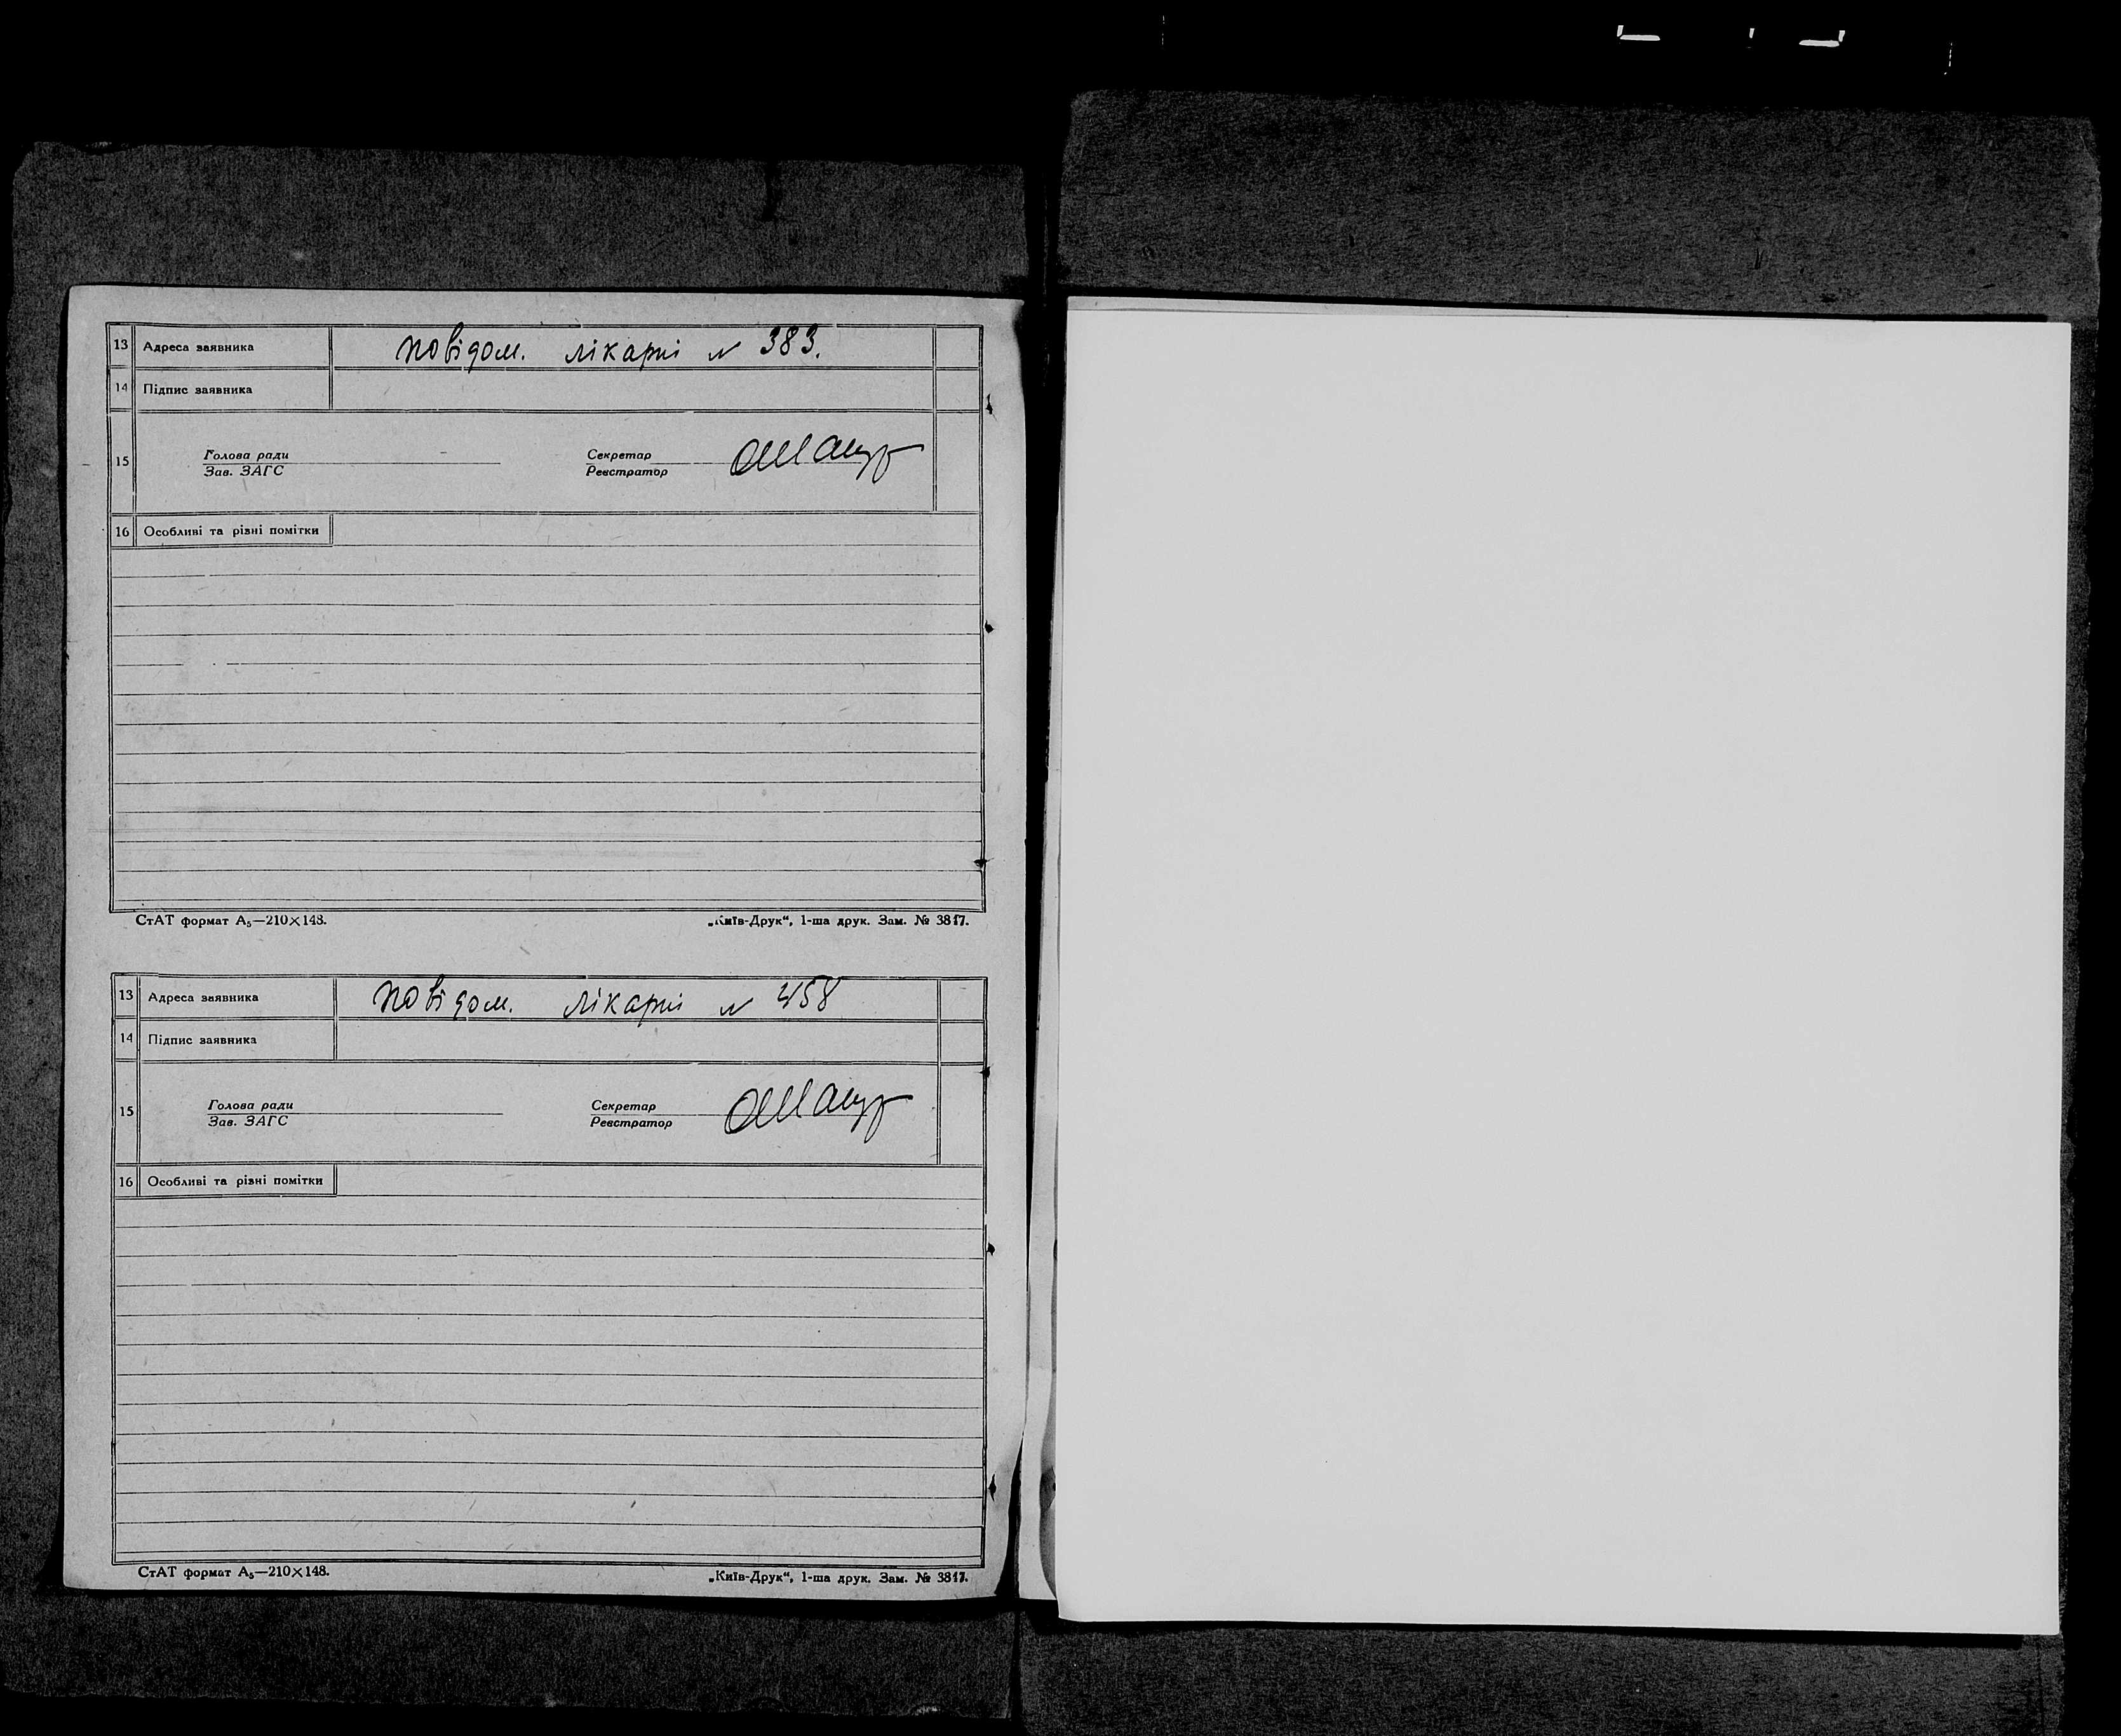 13 Адреса заявника повідом. лікарні № 383.
14 Підпис заявника
15 Голова ради Секретар
Зав. ЗАГС Реєстратор
16 Особливі та різні помітки
СтАТ формат А₅—210×148. „Київ-Друк“, 1-ша друк. Зам. № 3817.
13 Адреса заявника повідом. лікарні № 458
14 Підпис заявника
15 Голова ради Секретар
Зав. ЗАГС Реєстратор
16 Особливі та різні помітки
СтАТ формат А₅—210×148. „Київ-Друк“, 1-ша друк. Зам. № 3817.